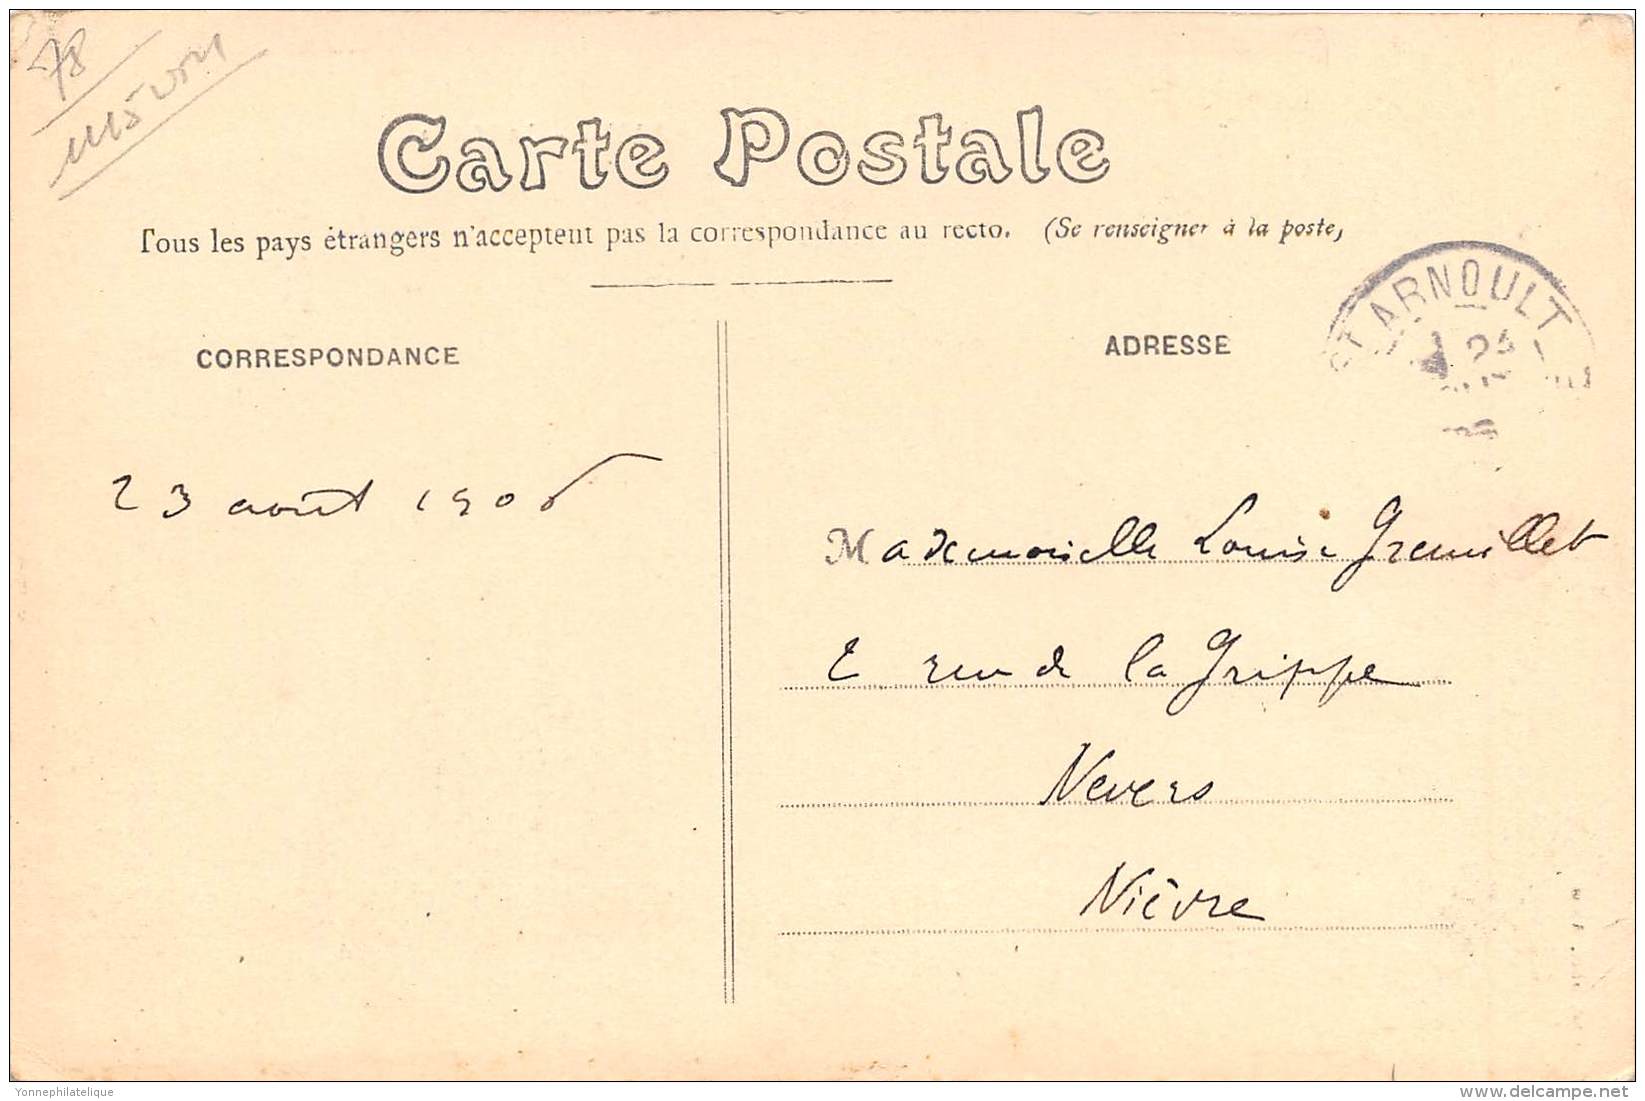 78
Carte Postale
Tous les pays étrangers n'acceptent pas la correspondance au recto. (Se renseigner à la poste)
ST ARNOULT
24
CORRESPONDANCE
ADRESSE
23 août 1906
Mademoiselle Louise Gremillet
2 rue de la Grippe
Nevers
Nièvre
Yonnephilatelique
delcampe.net